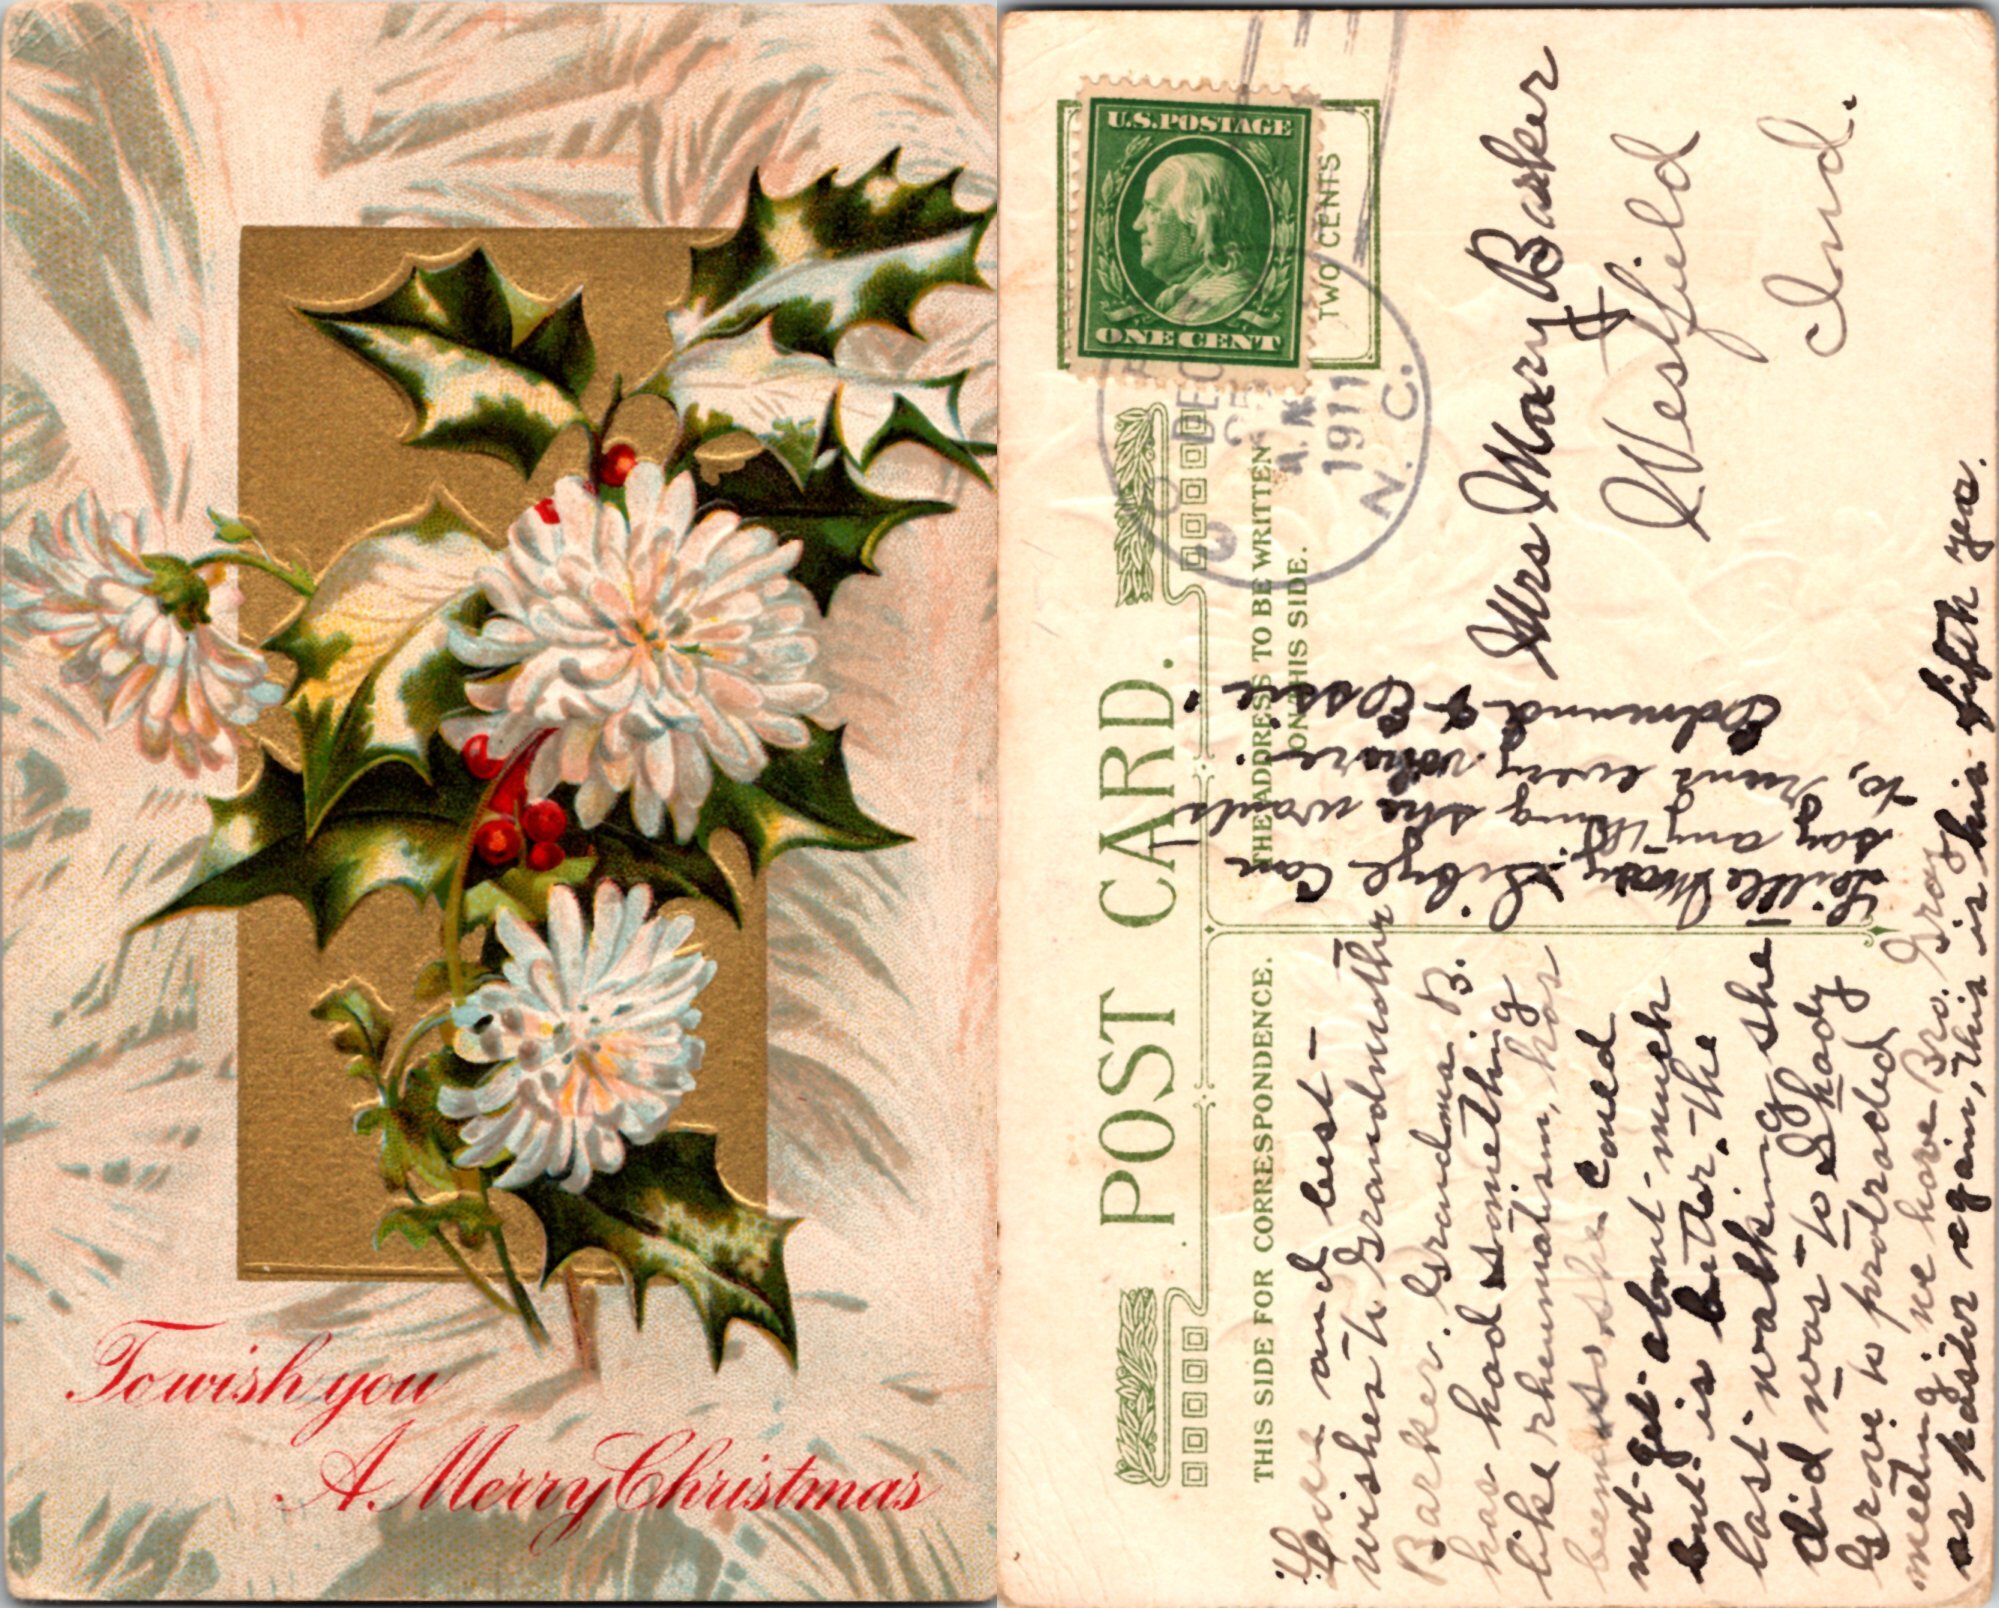 To wish you
A Merry Christmas
POST CARD.
THIS SIDE FOR CORRESPONDENCE.
THE ADDRESS TO BE WRITTEN
ON THIS SIDE.
U.S. POSTAGE
ONE CENT
TWO CENTS
DEC
A.M.
1911
N. C.
Mrs Mary Barker
Westfield
Ind.
Love and best
wishes to Grandmother
Barker. Grandma B.
has had something
like rheumatism, has
been so she could
not get about much
but is better. The
last walking she
did was to Shady
Grove to protracted
meeting, we have Bro. Gray
as pastor again, this is his fifth year.
Little Mary Sibyl can
say anything she wants
to, runs every where.
Edmund & Essie.